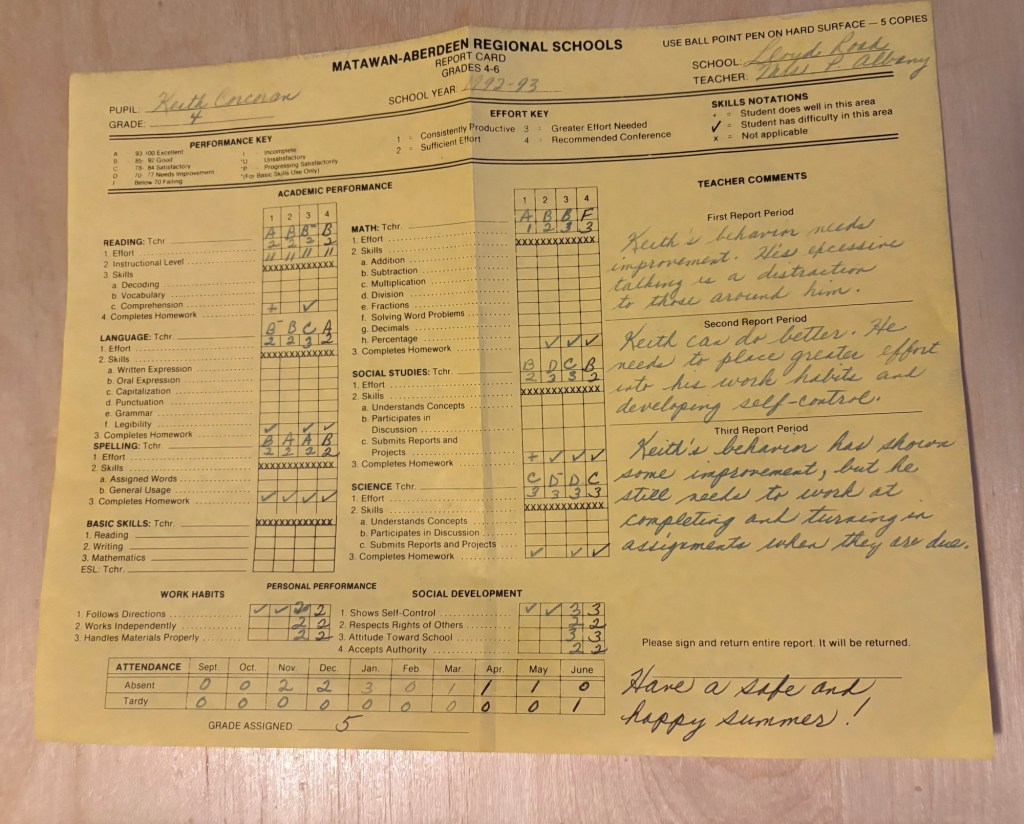 MATAWAN-ABERDEEN REGIONAL SCHOOLS
REPORT CARD
GRADES 4-6
USE BALL POINT PEN ON HARD SURFACE — 5 COPIES
SCHOOL: Lloyd Road
TEACHER: P. Albany
PUPIL: Keith Corcoran
GRADE: 4
SCHOOL YEAR: 1992-93
PERFORMANCE KEY
A 93-100 Excellent
B 85-92 Good
C 78-84 Satisfactory
D 70-77 Needs Improvement
F Below 70 Failing
I Incomplete
*U Unsatisfactory
*P Progressing Satisfactorily
*(For Basic Skills Use Only)
EFFORT KEY
1 = Consistently Productive 3 = Greater Effort Needed
2 = Sufficient Effort 4 = Recommended Conference
SKILLS NOTATIONS
+ = Student does well in this area
✓ = Student has difficulty in this area
x = Not applicable
ACADEMIC PERFORMANCE
1 2 3 4
READING: Tchr. A B B- B
1. Effort 2 2 2 2
2. Instructional Level 11 11 11 11
3. Skills XXXXXXXXXXXX
a. Decoding
b. Vocabulary
c. Comprehension
4. Completes Homework + ✓
LANGUAGE: Tchr. B- B C A
1. Effort 2 2 3 2
2. Skills XXXXXXXXXXXX
a. Written Expression
b. Oral Expression
c. Capitalization
d. Punctuation
e. Grammar
f. Legibility
3. Completes Homework ✓ ✓ ✓
SPELLING: Tchr. B A A B
1. Effort 2 2 2 2
2. Skills XXXXXXXXXXXX
a. Assigned Words
b. General Usage
3. Completes Homework ✓ ✓ ✓ ✓
BASIC SKILLS: Tchr. XXXXXXXXXXXX
1. Reading
2. Writing
3. Mathematics
ESL: Tchr.
1 2 3 4
MATH: Tchr. A B B F
1. Effort 1 2 3 3
2. Skills XXXXXXXXXXXX
a. Addition
b. Subtraction
c. Multiplication
d. Division
e. Fractions
f. Solving Word Problems
g. Decimals
h. Percentage
3. Completes Homework ✓ ✓ ✓
SOCIAL STUDIES: Tchr. B D C B
1. Effort 2 3 3 2
2. Skills XXXXXXXXXXXX
a. Understands Concepts
b. Participates in
Discussion
c. Submits Reports and
Projects
3. Completes Homework + ✓ ✓ ✓
SCIENCE Tchr. C D- D C
1. Effort 3 3 3 3
2. Skills XXXXXXXXXXXX
a. Understands Concepts
b. Participates in Discussion
c. Submits Reports and Projects
3. Completes Homework ✓ ✓ ✓
TEACHER COMMENTS
First Report Period
Keith's behavior needs
improvement. His excessive
talking is a distraction
to those around him.
Second Report Period
Keith can do better. He
needs to place greater effort
into his work habits and
developing self-control.
Third Report Period
Keith's behavior has shown
some improvement, but he
still needs to work at
completing and turning in
assignments when they are due.
PERSONAL PERFORMANCE
WORK HABITS
1. Follows Directions ✓ ✓ 2 2
2. Works Independently 2 2
3. Handles Materials Properly 2 2
SOCIAL DEVELOPMENT
1. Shows Self-Control ✓ ✓ 3 3
2. Respects Rights of Others 2 2
3. Attitude Toward School 3 3
4. Accepts Authority 2 2
ATTENDANCE Sept. Oct. Nov. Dec. Jan. Feb. Mar. Apr. May June
Absent 0 0 2 2 3 0 1 1 1 0
Tardy 0 0 0 0 0 0 0 0 0 1
GRADE ASSIGNED 5
Please sign and return entire report. It will be returned.
Have a safe and
happy summer!